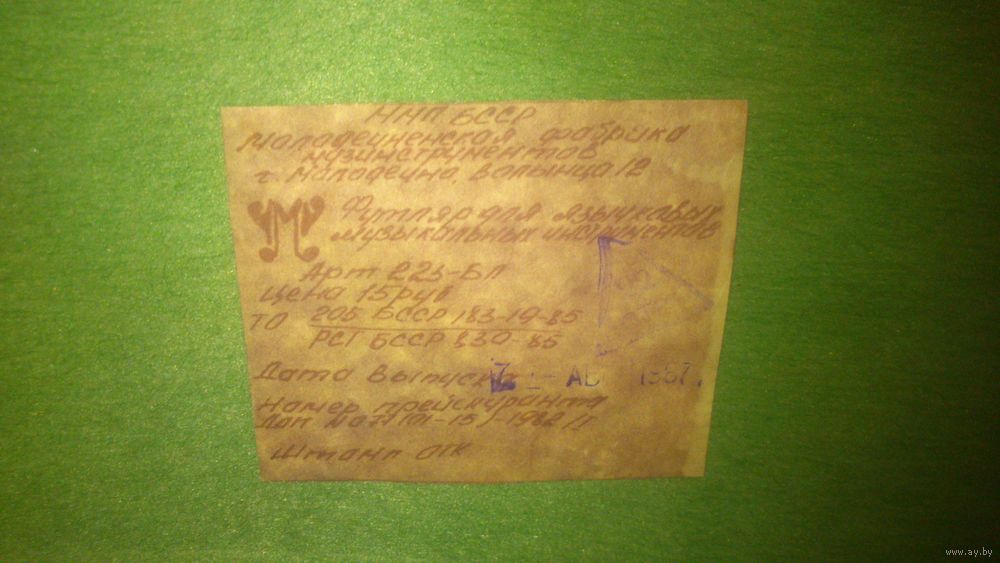 ННП БССР
Маладечненская фабрика
музинструментов
г. Маладечна, Волынца 12
Футляр для язычковых
музыкальных инструментов
Арт 223-БЛ
Цена 15 руб
ТО 205 БССР 183-19-85
РСТ БССР 830-85
Дата выпуска 1987
Намер прейскуранта
Доп
Штамп ОТК
www.ay.by